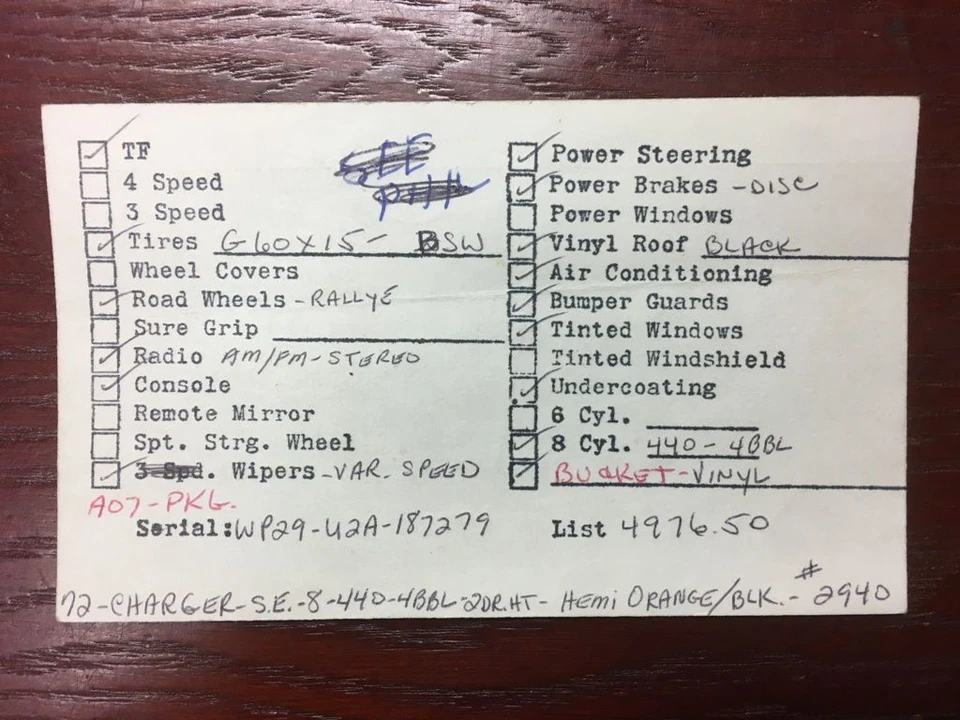 TF
4 Speed
3 Speed
Tires G60X15- BSW
Wheel Covers
Road Wheels -RALLYE
Sure Grip
Radio AM/FM-STEREO
Console
Remote Mirror
Spt. Strg. Wheel
3 Spd. Wipers -VAR. SPEED
A07-PKG.
Serial:WP29-U2A-187279
SEE
PHIL
Power Steering
Power Brakes -DISC
Power Windows
Vinyl Roof BLACK
Air Conditioning
Bumper Guards
Tinted Windows
Tinted Windshield
Undercoating
6 Cyl.
8 Cyl. 440-4BBL
BUCKET-VINYL
List 4976.50
72-CHARGER-S.E.-8-440-4BBL-2DR.HT- HEMI ORANGE/BLK.- #2940